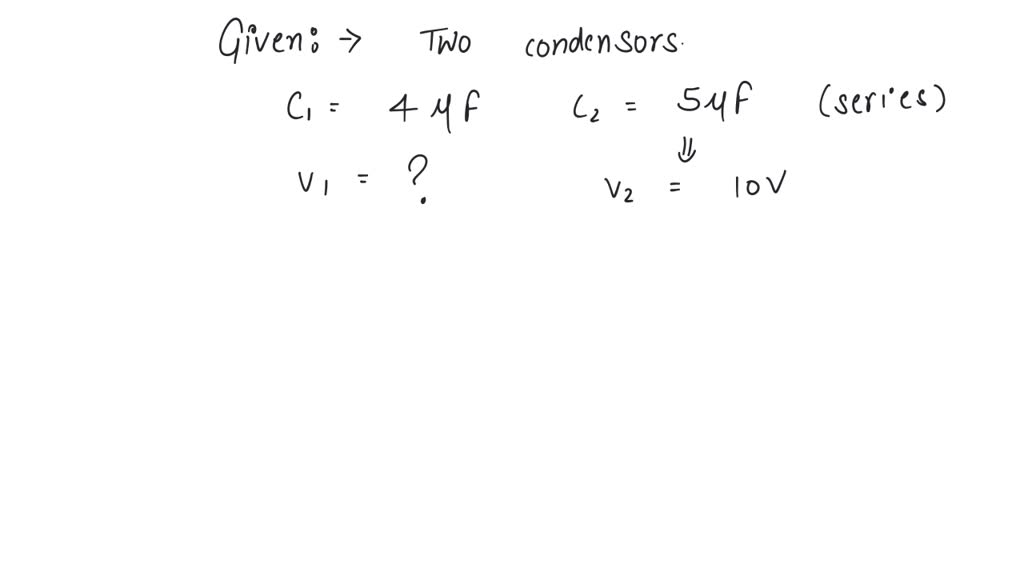 Given: → Two condensors.
C₁ = 4 μf C₂ = 5μf (series)
⇓
V₁ = ? V₂ = 10V